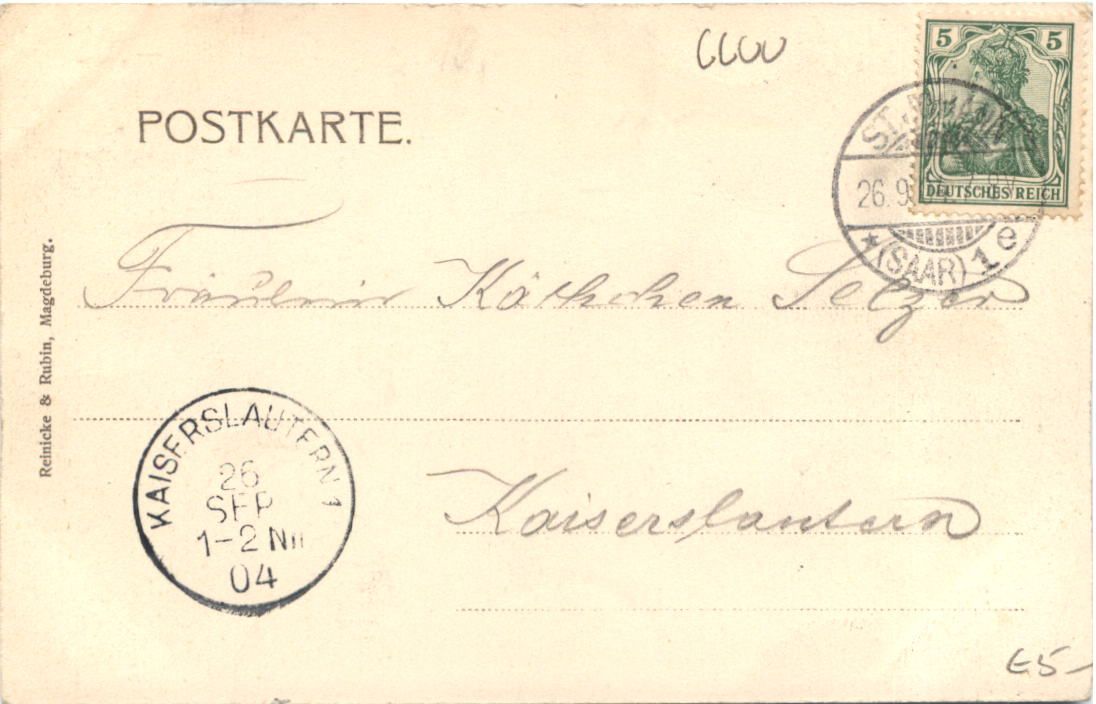 6600
5 5
DEUTSCHES REICH
POSTKARTE.
26.9.
*(SAAR) 1 e
Fräulein Käthchen Selzer
Reinicke & Rubin, Magdeburg.
KAISERSLAUTERN 1
26
SEP
1-2 NM
04
Kaiserslautern
€5-